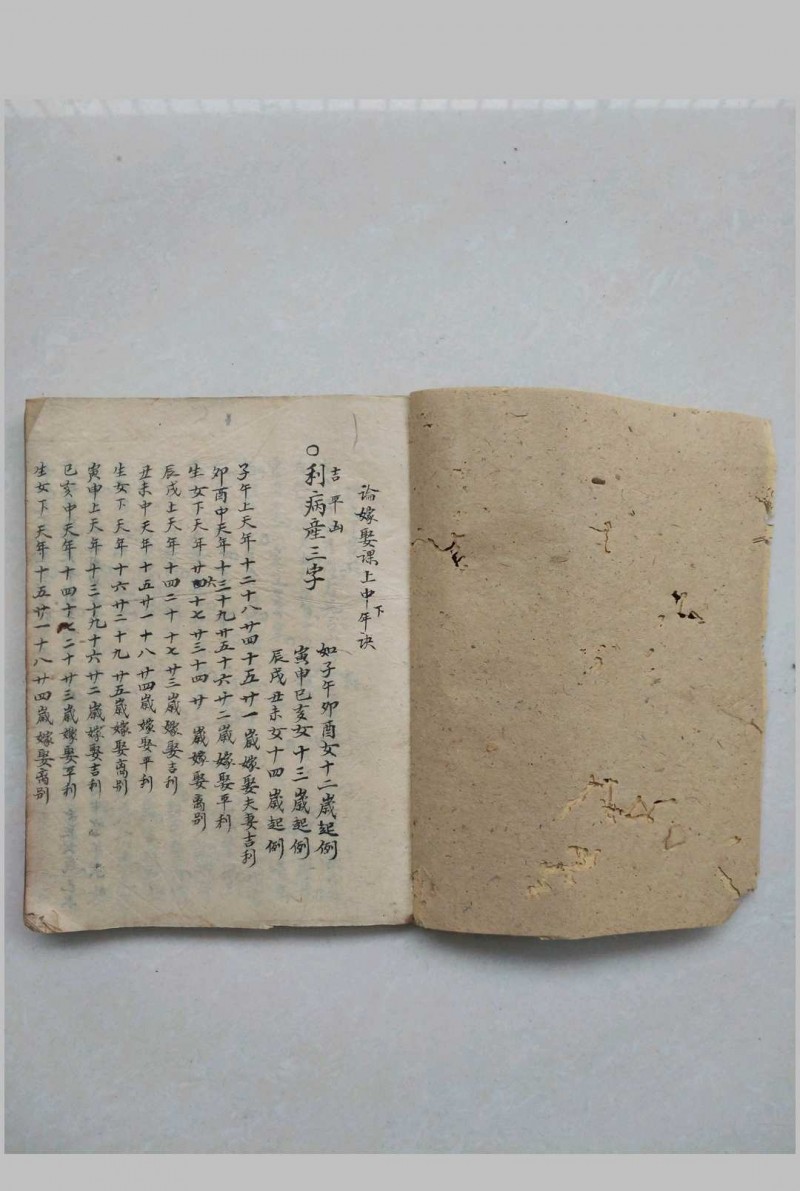 论嫁娶课上中下年诀
吉平凶
○利病產三字
如子午卯酉女十二嵗起例
寅申巳亥女十三嵗起例
辰戌丑未女十四嵗起例
子午上天年十二十八廿四十五廿一嵗嫁娶夫妻吉利
卯酉中天年十三十九廿五十六廿二嵗嫁娶平利
生女下天年廿六十七廿三十四廿 嵗嫁娶离别
辰戌上天年十四二十十七廿三嵗嫁娶吉利
丑未中天年十五廿一十八廿四嵗嫁娶平利
生女下天年十六廿二十九廿五嵗嫁娶离别
寅申上天年十三十九十六廿二嵗嫁娶吉利
巳亥中天年十四十七二十廿三嵗嫁娶平利
生女下天年十五廿一十八廿四嵗嫁娶离别